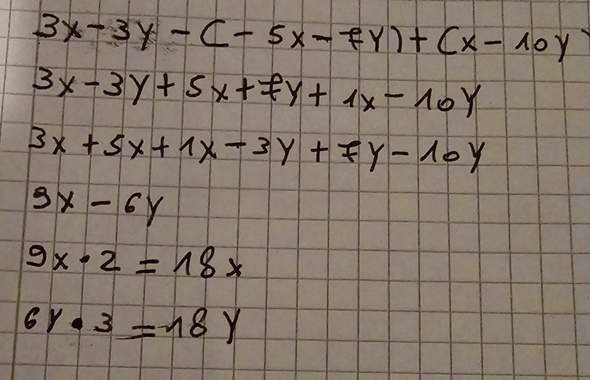 3x - 3y - (- 5x - 7y) + (x - 10y)
3x - 3y + 5x + 7y + 1x - 10y
3x + 5x + 1x - 3y + 7y - 10y
9x - 6y
9x · 2 = 18x
6y · 3 = 18y